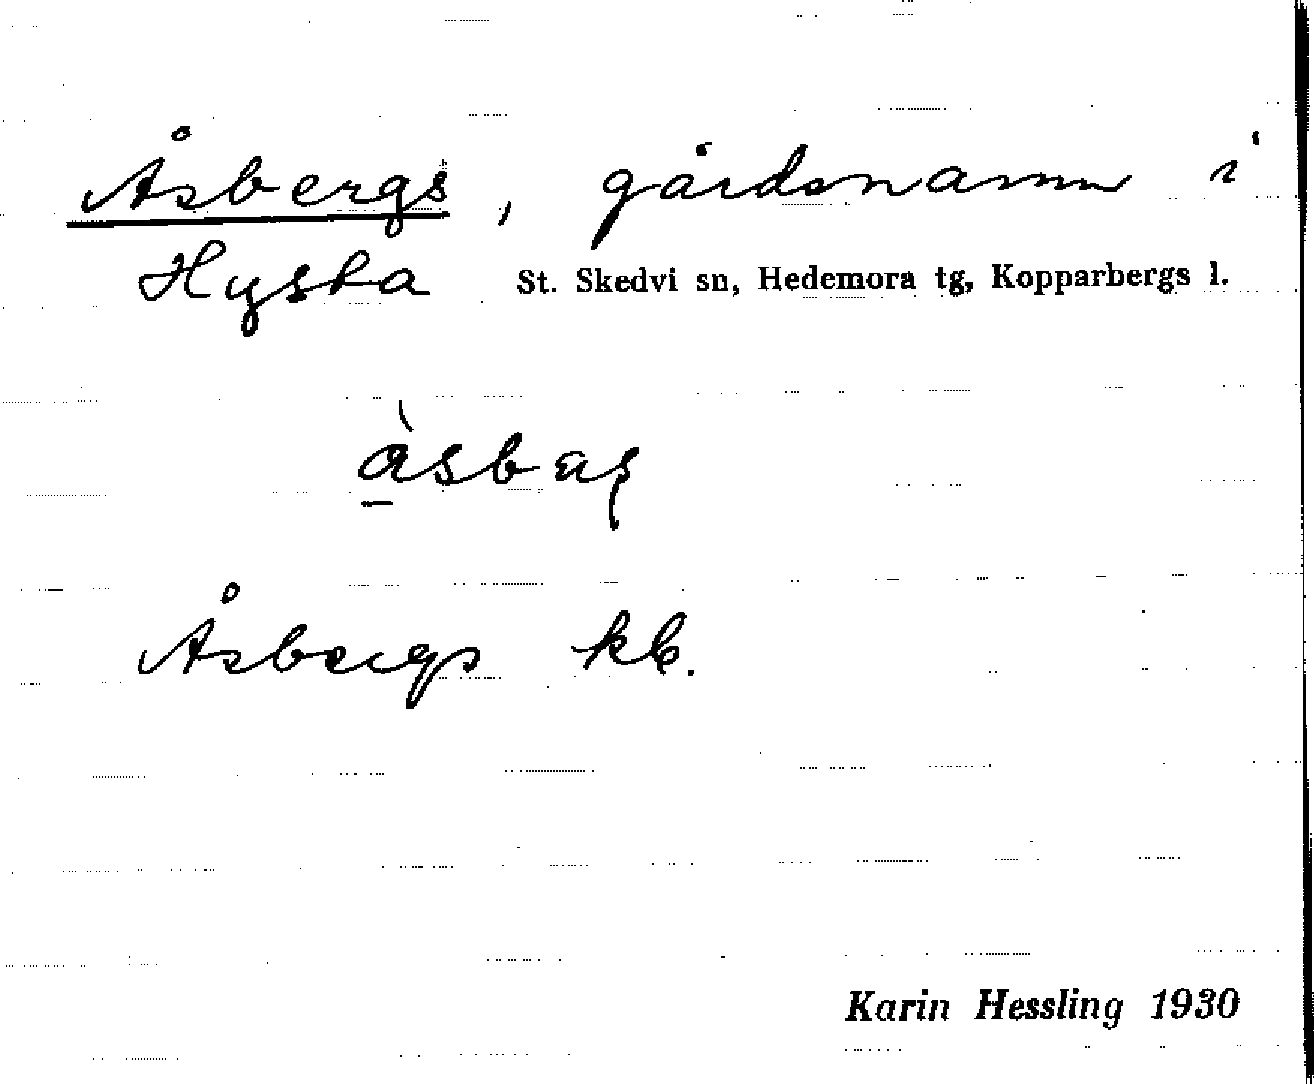 Åsbergs, gårdsnamn i
Hysta St. Skedvi sn, Hedemora tg, Kopparbergs l.
Åsbergs kb.
Karin Hessling 1930